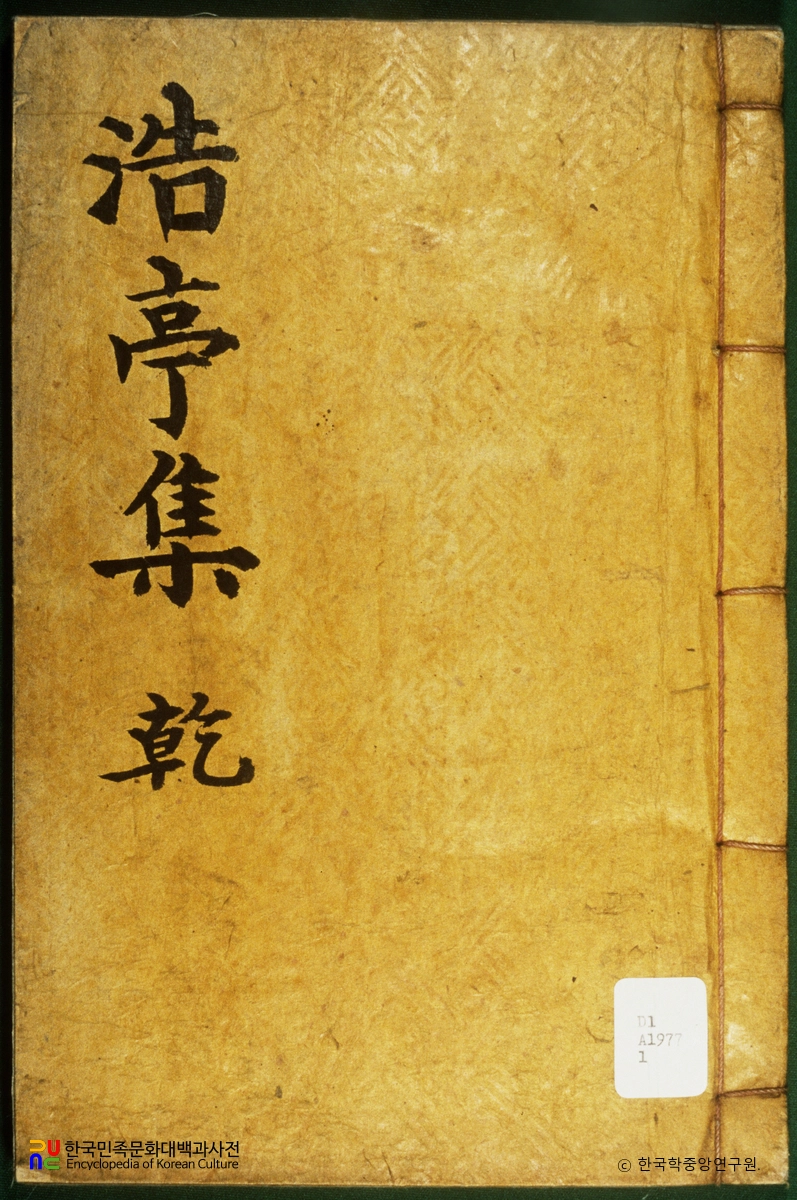 浩亭集 乾
D1
A1977
1
한국민족문화대백과사전
Encyclopedia of Korean Culture
ⓒ 한국학중앙연구원.